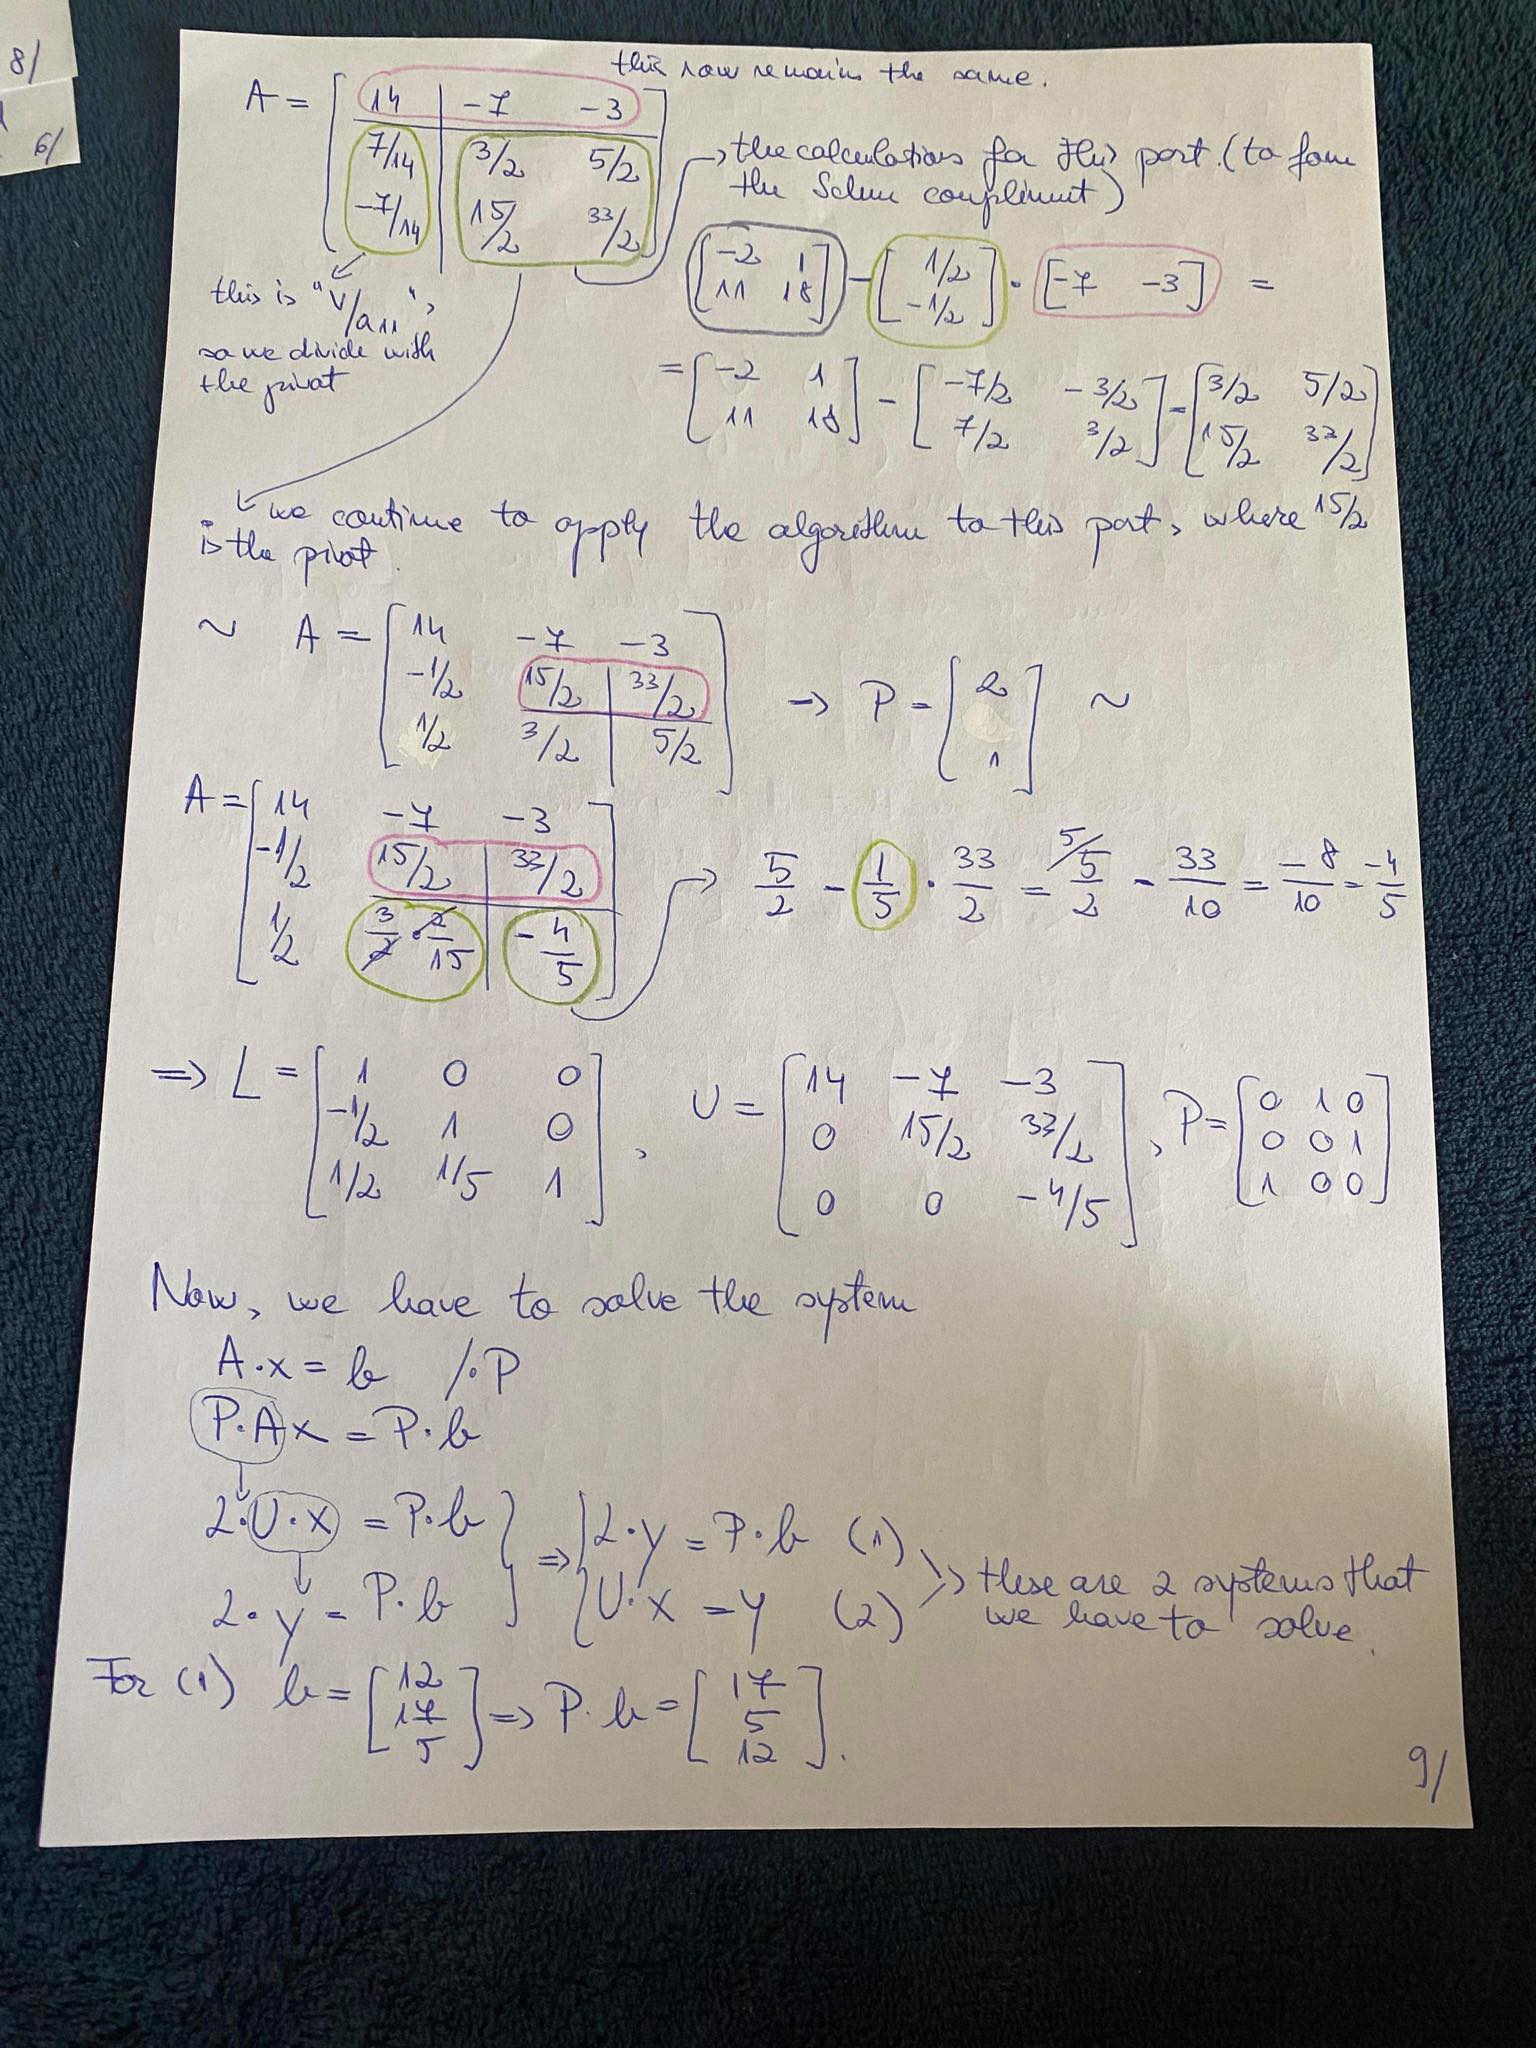 8/
6/
this row remains the same.
A = [ 14 | -7 -3 ]
[ 7/14 | 3/2 5/2 ]
[ -7/14 | 15/2 33/2 ]
→ the calculations for this part. (to form
the Schur compliment)
[ -2 1 ; 11 18 ] - [ 1/2 ; -1/2 ] · [ -7 -3 ] =
this is "v/a11",
so we divide with
the pivot
= [ -2 1 ; 11 18 ] - [ -7/2 -3/2 ; 7/2 3/2 ] = [ 3/2 5/2 ; 15/2 33/2 ]
we continue to apply the algorithm to this part, where 15/2
is the pivot.
~ A = [ 14 -7 -3 ; -1/2 15/2 33/2 ; 1/2 3/2 5/2 ] → P = [ 2 ; ; 1 ] ~
A = [ 14 -7 -3 ; -1/2 15/2 33/2 ; 1/2 3/2 · 2/15 -4/5 ] → 5/2 - 1/5 · 33/2 = 5/ 5/2 - 33/10 = -8/10 = -4/5
⇒ L = [ 1 0 0 ; -1/2 1 0 ; 1/2 1/5 1 ] , U = [ 14 -7 -3 ; 0 15/2 33/2 ; 0 0 -4/5 ] , P = [ 0 1 0 ; 0 0 1 ; 1 0 0 ]
Now, we have to solve the system
A·x = b /·P
P·Ax = P·b
L·U·x = P·b
L·y = P·b
⇒ { L·y = P·b (1)
U·x = y (2)
⇒ these are 2 systems that
we have to solve.
For (1) b = [ 12 ; 17 ; 5 ] ⇒ P·b = [ 17 ; 5 ; 12 ].
9/